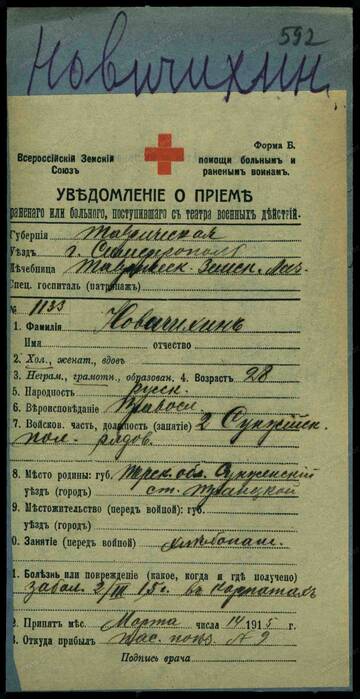 592
Новичихин
Форма Б.
Всероссійскій Земскій
Союзъ
помощи больнымъ и
раненымъ воинамъ.
УВѢДОМЛЕНІЕ О ПРІЕМѢ
раненаго или больного, поступившаго съ театра военныхъ дѣйствій.
Губернія Таврическая
Уѣздъ г. Симферополь
Лѣчебница Таврическ. Земск. Леч.
Спец. госпиталь (патронажъ)
№ 1133
1. Фамилія Новичихинъ
Имя отчество
2. Хол., женат., вдовъ
3. Неграм., грамотн., образован. 4. Возрастъ 28
5. Народность русск.
6. Вѣроисповѣданіе Правосл
7. Войсков. часть, должность (занятіе) 2 Сунженск.
пол. рядов.
8. Мѣсто родины: губ. Терск. обл. Сунженскій
уѣздъ (городъ) ст. Троицкой
9. Мѣстожительство (передъ войной): губ.
уѣздъ (городъ)
0. Занятіе (передъ войной) хлебопаш.
1. Болѣзнь или поврежденіе (какое, когда и гдѣ получено)
Забол. 2/III 15 г. въ Карпатахъ
2. Принятъ мѣс. Марта числа 14/1915 г.
3. Откуда прибылъ № 9
Подпись врача